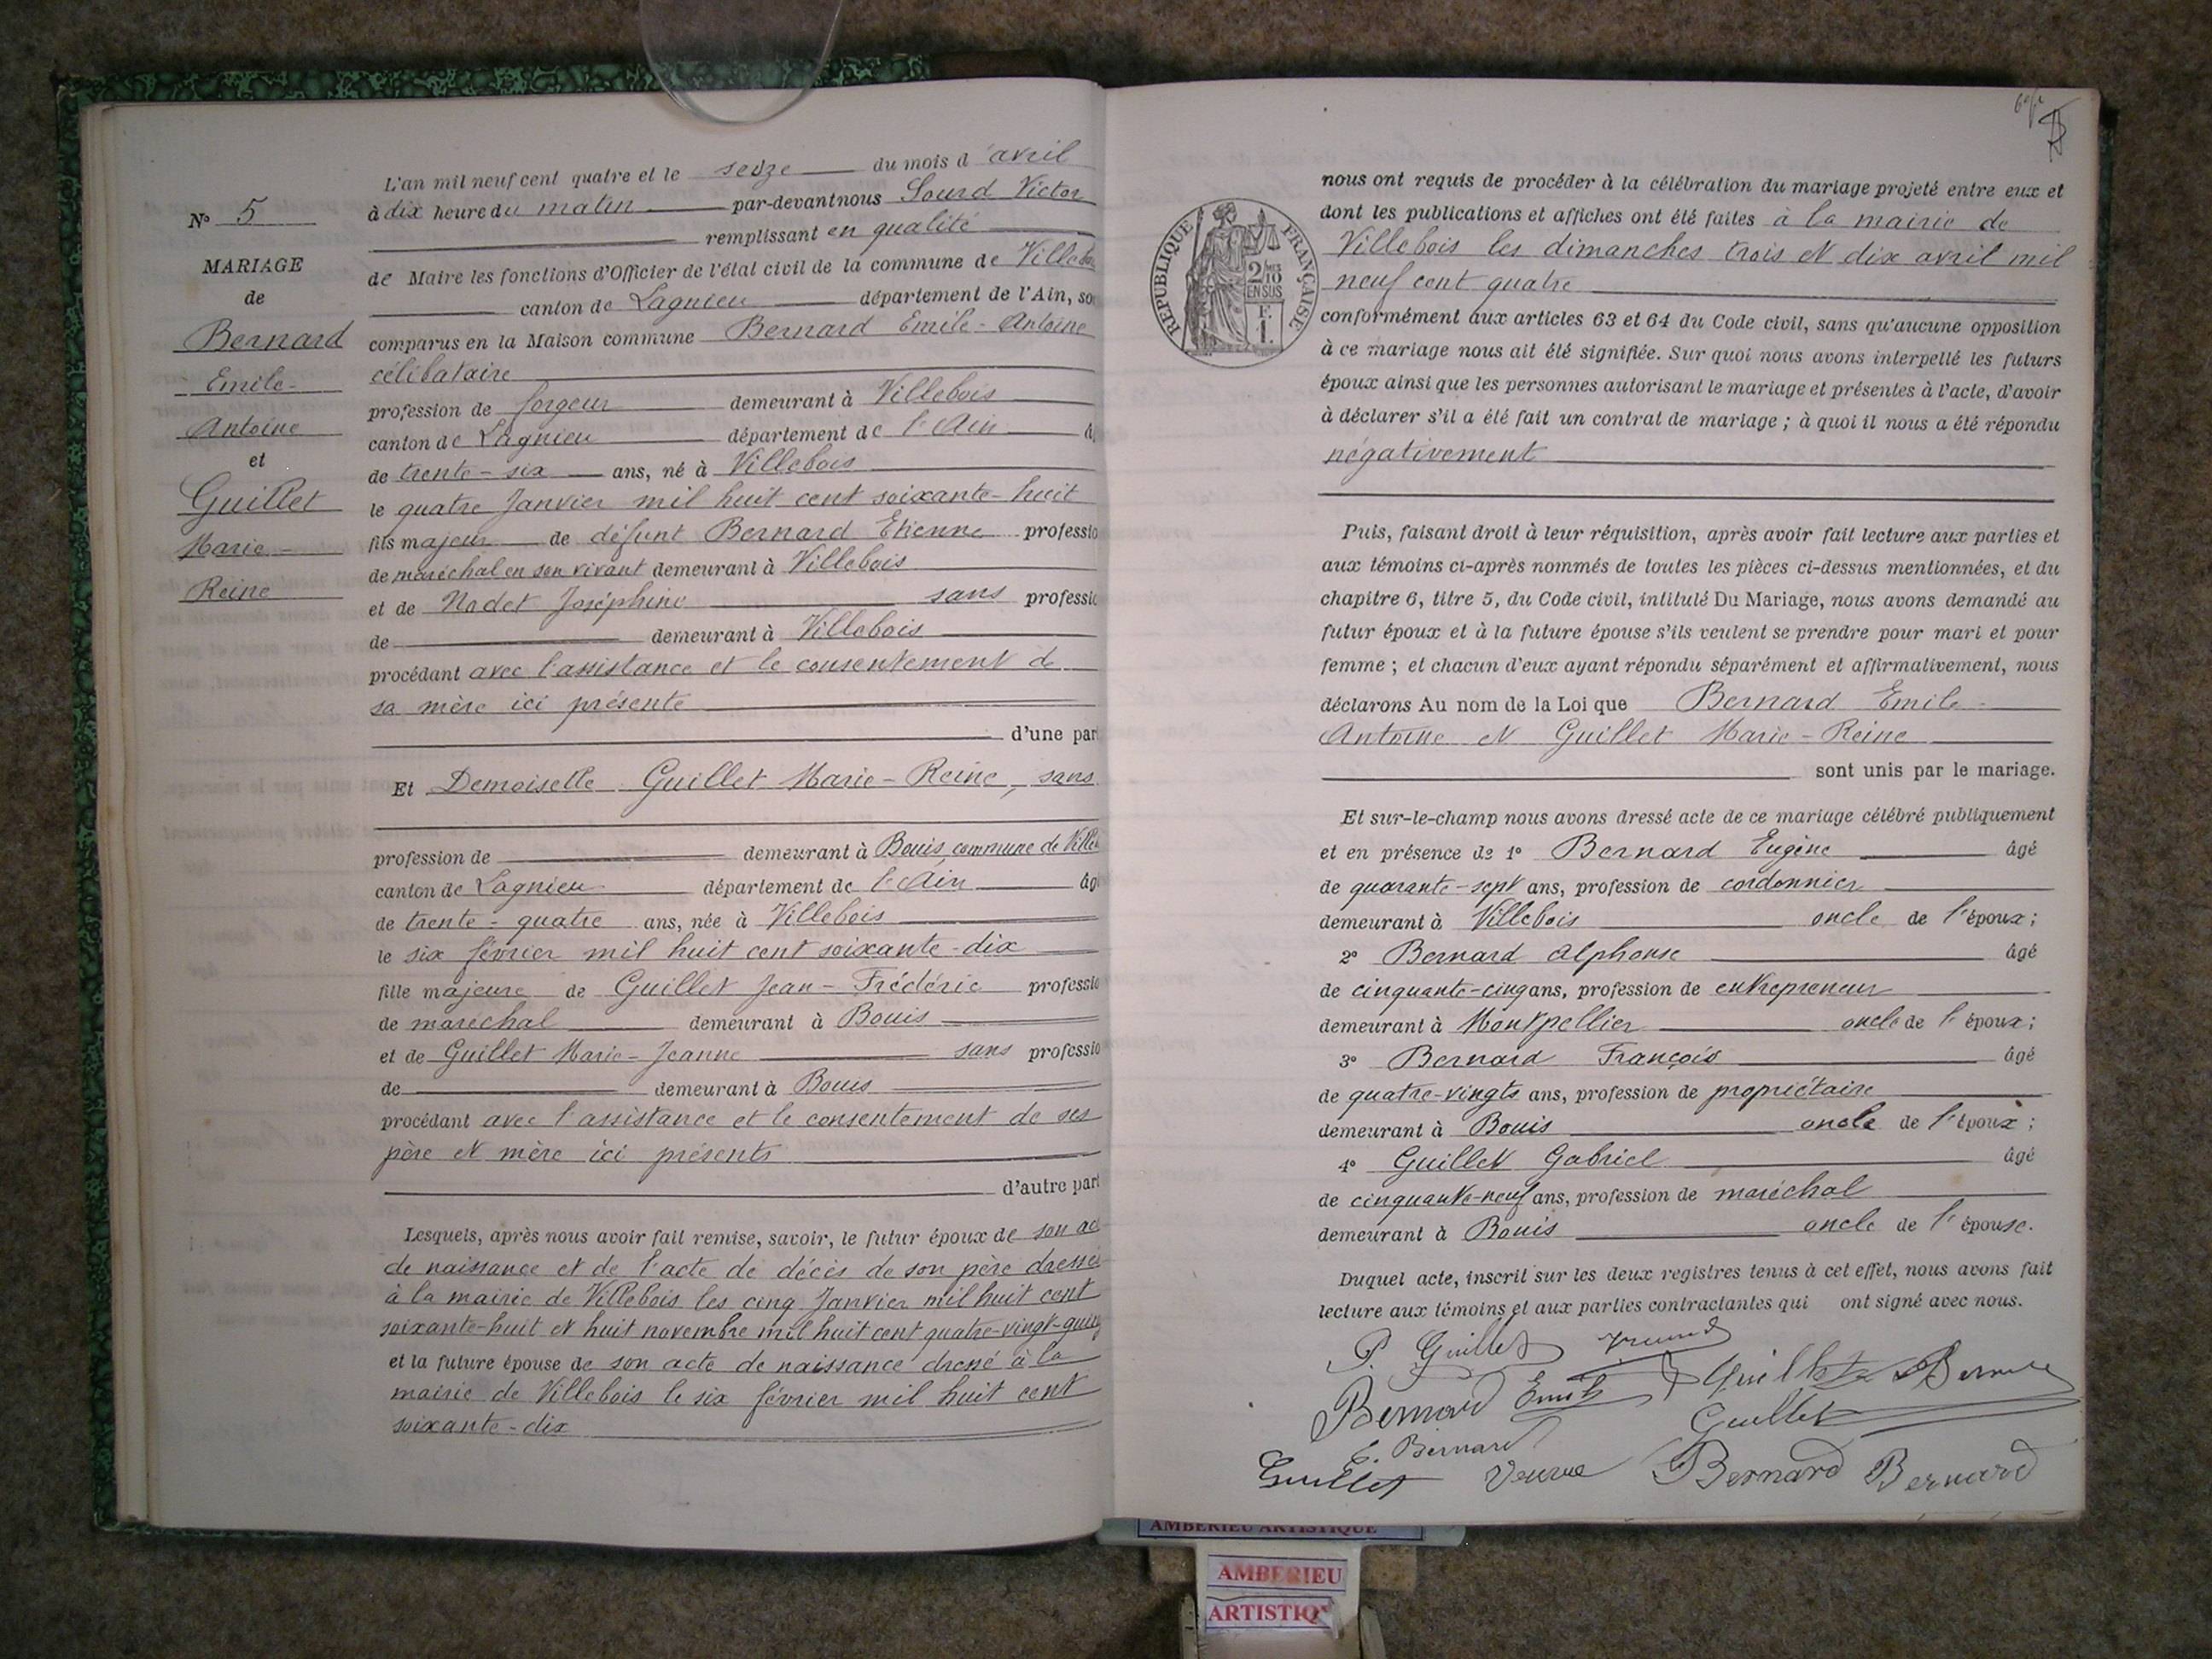 N° 5
MARIAGE
de
Bernard
Emile-
Antoine
et
Guillet
Marie-
Reine
L'an mil neuf cent quatre et le seize du mois d'avril
à dix heure du matin par-devant nous Sourd Victor
remplissant en qualité
de Maire les fonctions d'Officier de l'état civil de la commune de Villebois
canton de Lagnieu département de l'Ain, so
comparus en la Maison commune Bernard Emile-Antoine
célibataire
profession de forgeur demeurant à Villebois
canton de Lagnieu département de l'Ain â
de trente-six ans, né à Villebois
le quatre Janvier mil huit cent soixante-huit
fils majeur de défunt Bernard Etienne professio
de maréchal en son vivant demeurant à Villebois
et de Nodet Joséphine sans professio
de demeurant à Villebois
procédant avec l'assistance et le consentement de
sa mère ici présente
d'une part
Et Demoiselle Guillet Marie-Reine, sans
profession de demeurant à Bouis, commune de Villeb
canton de Lagnieu département de l'Ain âg
de trente-quatre ans, née à Villebois
le six février mil huit cent soixante-dix
fille majeure de Guillet Jean-Frédéric professio
de maréchal demeurant à Bouis
et de Guillet Marie-Jeanne sans professio
de demeurant à Bouis
procédant avec l'assistance et le consentement de ses
père et mère ici présents
d'autre part
Lesquels, après nous avoir fait remise, savoir, le futur époux de son ac
de naissance et de l'acte de décès de son père dressés
à la mairie de Villebois les cinq Janvier mil huit cent
soixante-huit et huit novembre mil huit cent quatre-vingt-quinz
et la future épouse de son acte de naissance dressé à la
mairie de Villebois le six février mil huit cent
soixante-dix
nous ont requis de procéder à la célébration du mariage projeté entre eux et
dont les publications et affiches ont été faites à la mairie de
Villebois les dimanches trois et dix avril mil
neuf cent quatre
RÉPUBLIQUE FRANÇAISE
2/10
EN SUS
F.
1.
conformément aux articles 63 et 64 du Code civil, sans qu'aucune opposition
à ce mariage nous ait été signifiée. Sur quoi nous avons interpellé les futurs
époux ainsi que les personnes autorisant le mariage et présentes à l'acte, d'avoir
à déclarer s'il a été fait un contrat de mariage ; à quoi il nous a été répondu
négativement
Puis, faisant droit à leur réquisition, après avoir fait lecture aux parties et
aux témoins ci-après nommés de toutes les pièces ci-dessus mentionnées, et du
chapitre 6, titre 5, du Code civil, intitulé Du Mariage, nous avons demandé au
futur époux et à la future épouse s'ils veulent se prendre pour mari et pour
femme ; et chacun d'eux ayant répondu séparément et affirmativement, nous
déclarons Au nom de la Loi que Bernard Emile-
Antoine et Guillet Marie-Reine
sont unis par le mariage.
Et sur-le-champ nous avons dressé acte de ce mariage célébré publiquement
et en présence de 1° Bernard Eugène âgé
de quarante-sept ans, profession de cordonnier
demeurant à Villebois oncle de l'époux ;
2° Bernard Alphonse âgé
de cinquante-cinq ans, profession de entrepreneur
demeurant à Montpellier oncle de l'époux ;
3° Bernard François âgé
de quatre-vingts ans, profession de propriétaire
demeurant à Bouis oncle de l'époux ;
4° Guillet Gabriel âgé
de cinquante-neuf ans, profession de maréchal
demeurant à Bouis oncle de l'épouse.
Duquel acte, inscrit sur les deux registres tenus à cet effet, nous avons fait
lecture aux témoins et aux parties contractantes qui ont signé avec nous.
P. Guillet
Bernard Emile
Guillet
E. Bernard
Guillet Veuve Bernard Bernard
AMBERIEU ARTISTIQUE
AMBERIEU
ARTISTIQ